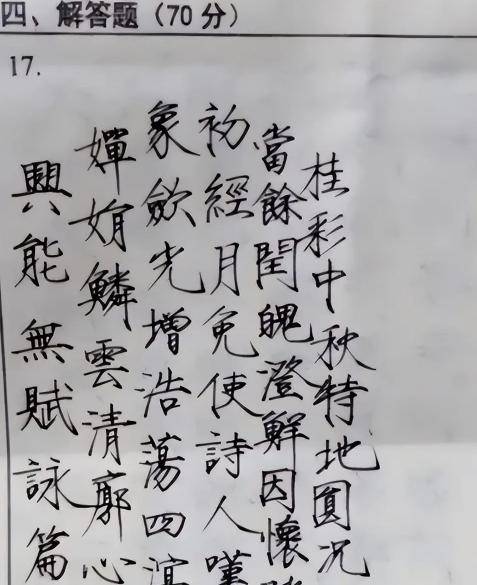 四、解答题（70分）
17.
桂彩中秋特地圓況
當餘閏魄澄鮮因懷
初經月免使詩人嘆
象歛光增浩蕩四溟
嬋娟鱗雲清廓心
興能無賦詠篇